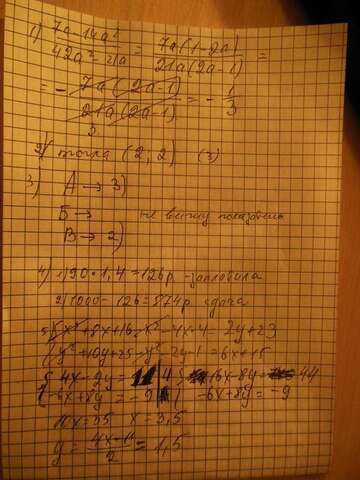 1) 7a-14a² / 42a²-21a = 7a(1-2a) / 21a(2a-1) =
= - 7a(2a-1) / 21a(2a-1) = - 1/3
3
2) точка (2, 2) (3)
3) А → 3)
Б → не вижу показатель
В → 2)
4) 1) 90·1,4=126р -заплатила
2) 1000-126=874р сдача
5) x²+8x+16-x²-4x-4=2y+23
y²+10y+25-y²-2y-1=6x+15
{4x-2y=11 |4 16x-8y=44
{-6x+8y=-9 |1 -6x+8y=-9
10x=35 x=3,5
y = 4x-11 / 2 = 1,5